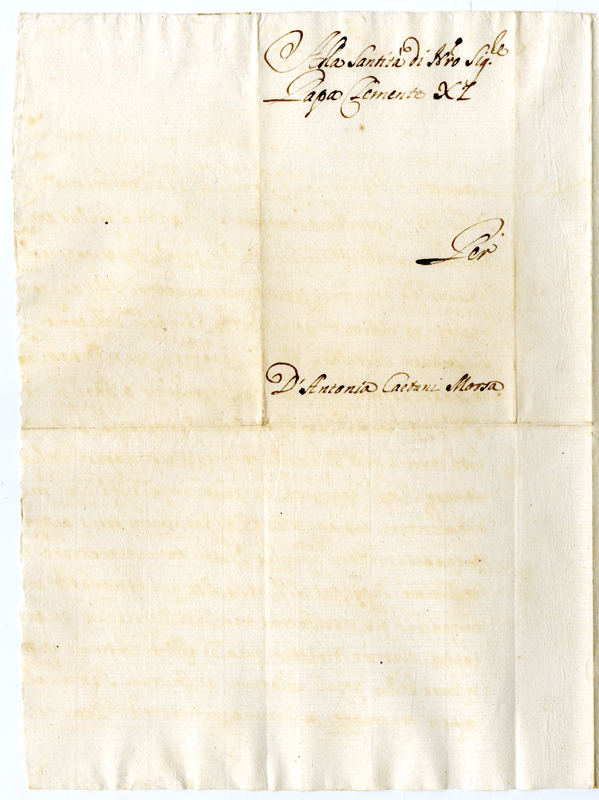 Alla Santità di Nro Sig.re
Papa Clemente XI
Per
D. Antonia Caetani Morsa